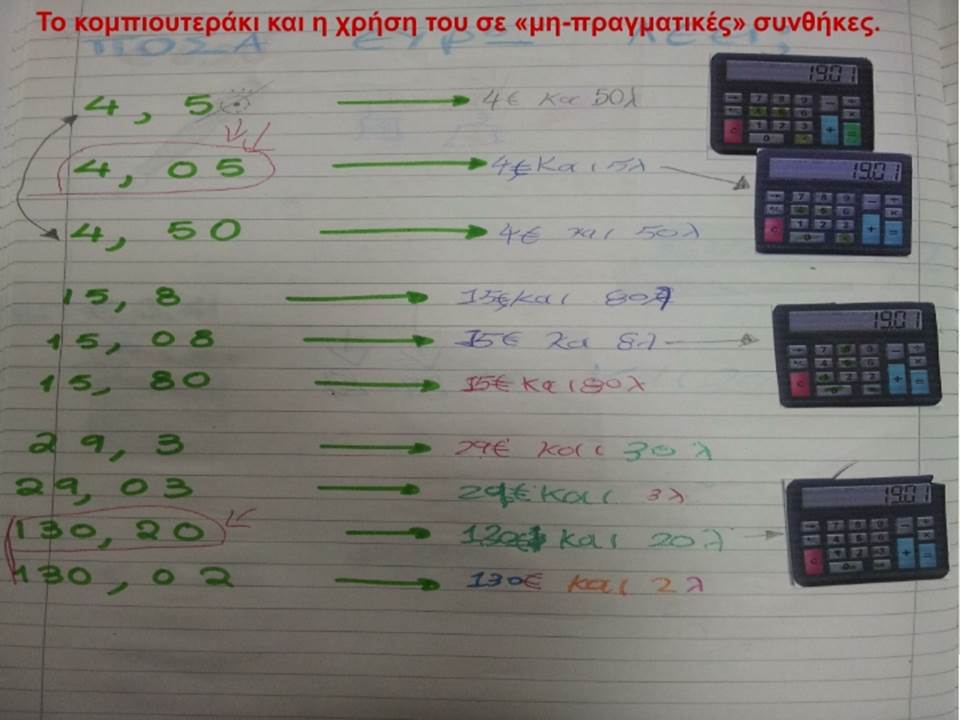 Το κομπιουτεράκι και η χρήση του σε «μη-πραγματικές» συνθήκες.
ΠΟΣΑ ΕΥΡΩ
4, 5 4€ κα 50λ
19.01
4, 05 4€ Και 5λ
19.01
4, 50 4€ και 50λ
15, 8 15€ και 80λ
19.01
15, 08 15€ κα 8λ
15, 80 15€ Και 80λ
29, 3 29€ και 30 λ
29, 03 29€ και 3λ
19.01
130, 20 130€ και 20λ
130, 02 130€ και 2λ